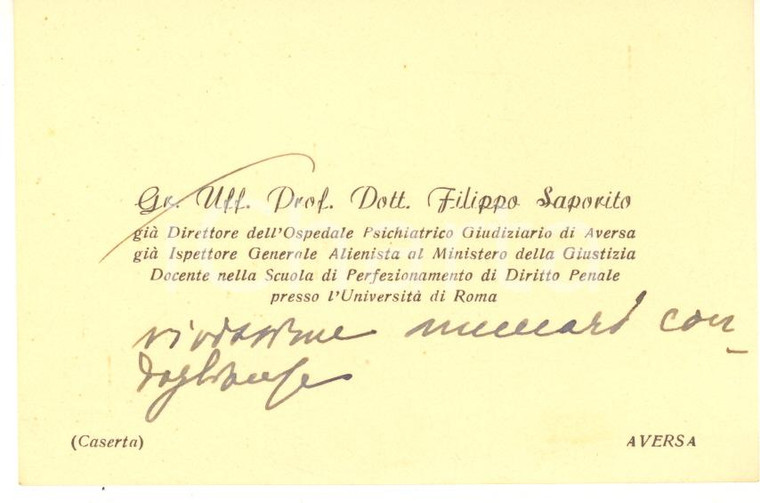 Gr. Uff. Prof. Dott. Filippo Saporito
già Direttore dell'Ospedale Psichiatrico Giudiziario di Aversa
già Ispettore Generale Alienista al Ministero della Giustizia
Docente nella Scuola di Perfezionamento di Diritto Penale
presso l'Università di Roma
vivissime con-
doglianze
(Caserta) AVERSA